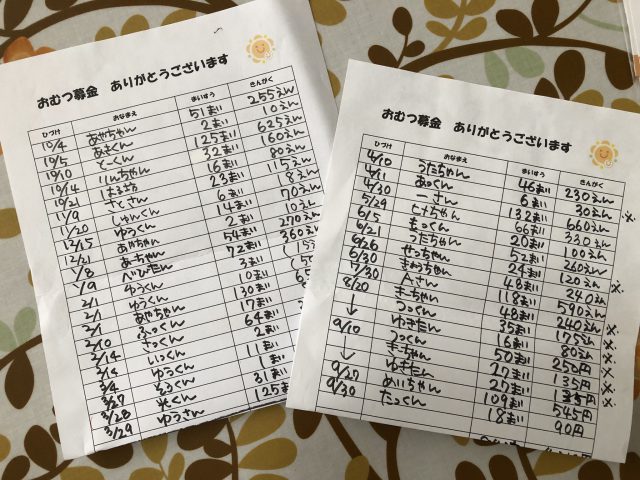 おむつ募金 ありがとうございます
ひづけ おなまえ まいすう きんがく
10/4 あやちゃん 51まい 255えん
10/5 あきくん 2まい 10えん
10/10 とーくん 125まい 625えん
10/14 りんちゃん 32まい 160えん
10/21 16まい 80えん
11/9 さとさん 23まい 115えん
11/20 しゅんくん 6まい 8えん
12/15 ゆうくん 14まい 70えん
12/21 2まい 10えん
1/8 あーちゃん 54まい 270えん
1/9 べびたん 72まい 360えん
2/1 ゆうくん 3まい
2/1 ゆうくん 10まい
あやちゃん 130まい
2/10 ふっくん 17まい
2/14 さっくん 64まい
いっくん 2まい
3/4 ゆうくん 11まい
3/27 そうくん 1まい
3/28 光くん 31まい
3/29 ゆうさん 125まい
おむつ募金 ありがとうございます
ひづけ おなまえ まいすう きんがく
4/10 うたちゃん 46まい 230えん
4/11 あっくん 6まい 30えん ※
4/30 一さん 132まい 660えん
5/29 66まい 330えん
6/15 もっくん 20まい 100えん
6/21 うたちゃん 52まい 260えん
6/26 せっちゃん 24まい 120えん ※
6/30 48まい 240えん
7/30 Aさん 118まい 590えん
8/20 まーちゃん 48まい 240えん ※
↓ つっくん 35まい 175えん ※
ゆきたん 16まい 80えん ※
9/10 つっくん 50まい 250円 ※
↓ まーちゃん 27まい 135円 ※
ゆきたん 27まい 135円 ※
9/27 めいちゃん 109まい 545円
9/30 たっくん 18まい 90円